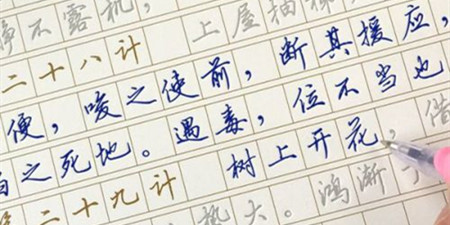 不露机，
二十八计 上屋抽
便，唆之使前，断其援应，
之死地。遇毒，位不当也
二十九计 树上开花，借
势大。鸿渐